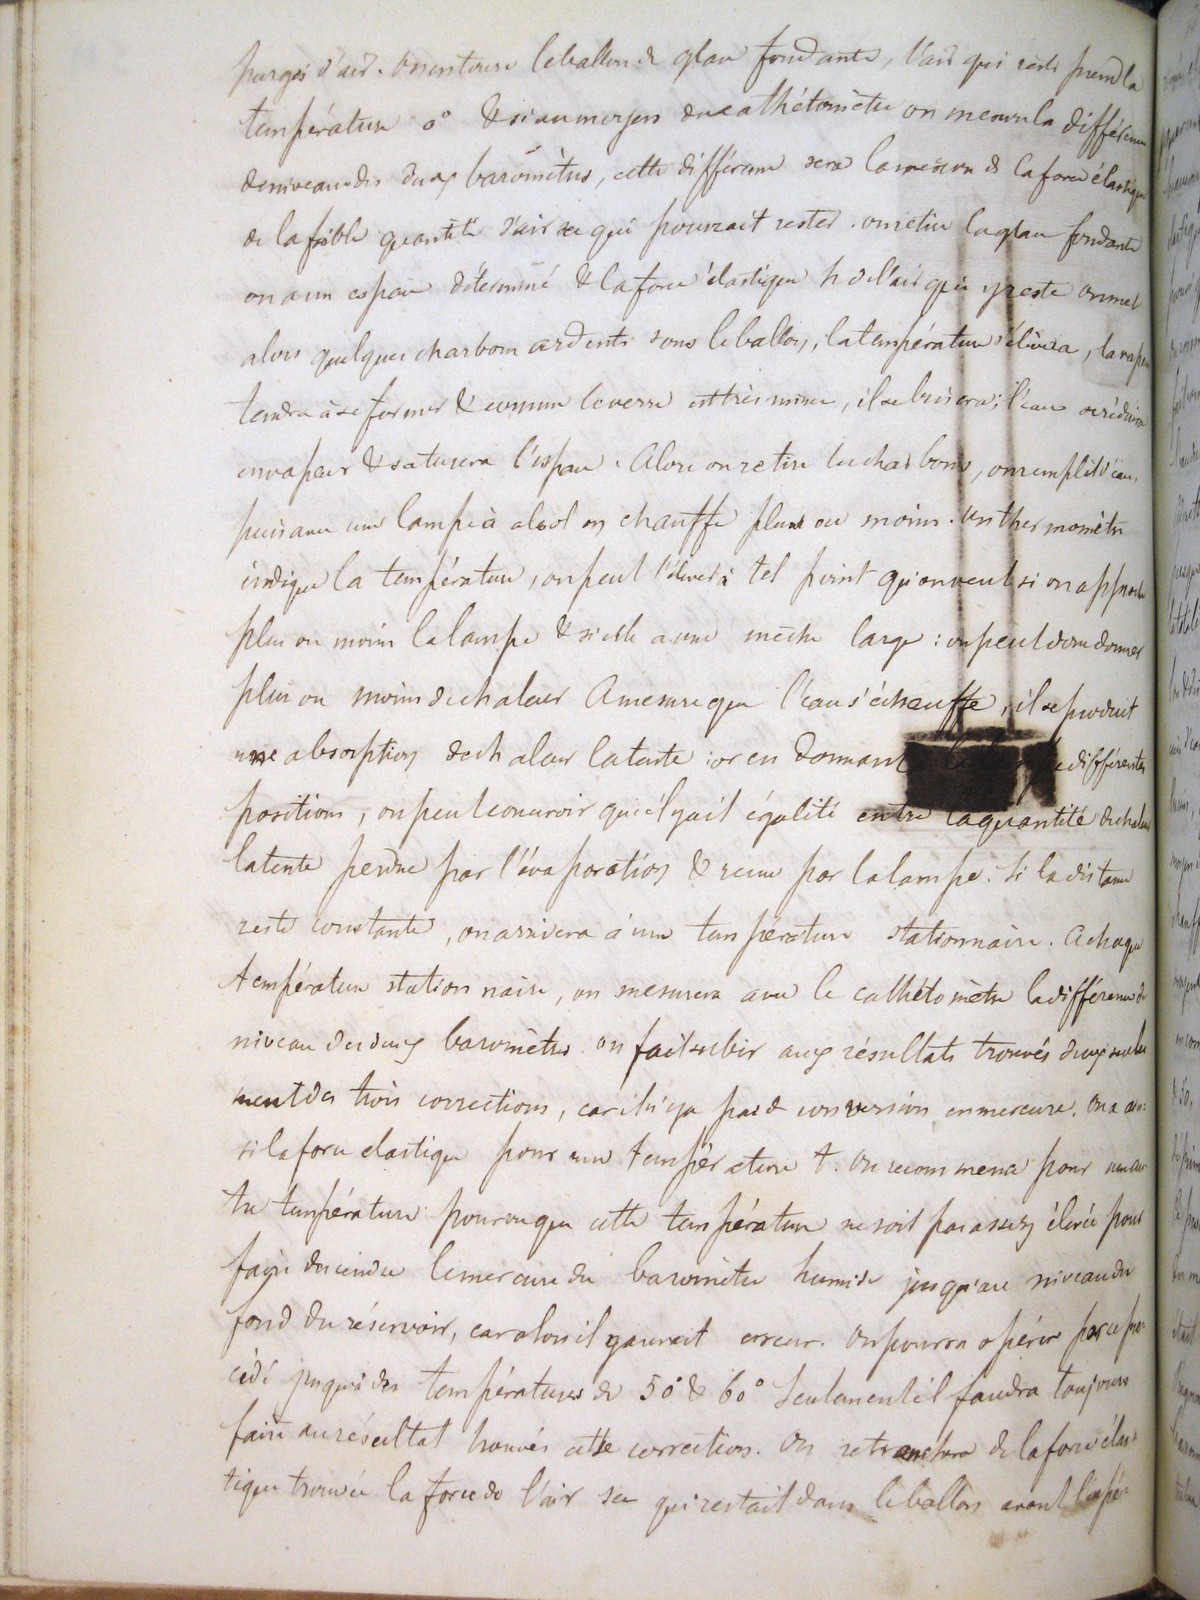 purgés d'air. On entoure le ballon de glace fondante, l'air qui reste prend la
température 0° & si au moyen du cathétomètre on mesure la différence
de niveau des deux baromètres, cette différence sera la mesure de la force élastique
de la faible quantité d'air sec qui pourrait rester. on retire la glace fondante
on a un espace déterminé & la force élastique h de l'air qui y reste on met
alors quelques charbons ardents sous le ballon, la température s'élèvera, la vapeur
tendra à se former & comme le verre est très mince, il se brisera; l'eau se réduira
en vapeur & saturera l'espace. Alors on retire les charbons, on remplit d'eau,
puis avec une lampe à alcol on chauffe plus ou moins. Un thermomètre
indique la température, on peut l'élever à tel point qu'on veut si on approche
plus ou moins la lampe & si elle a une mèche large : on peut donc donner
plus ou moins de chaleur A mesure que l'eau s'échauffe, il se produit
une absorption de chaleur latente : or en donnant différentes
positions, on peut concevoir qu'il y ait égalité entre la quantité de chaleur
latente perdue par l'évaporation & reçue par la lampe. Si la distance
reste constante, on arrivera à une température stationnaire. A chaque
température stationnaire, on mesurera avec le cathétomètre la différence de
niveau des deux baromètres. On fait subir aux résultats trouvés deux seule
ment des trois corrections, car il n'y a pas de conversion en mercure. On a ain-
si la force elastique pour une température t. On recommence pour une au
tre température pourvu que cette température ne soit pas assez élevée pour
faire descendre le mercure du baromètre humide jusqu'au niveau du
fond du réservoir, car alors il y aurait erreur. On pourra opérer par ce pro-
cédé jusqu'à des températures de 50° & 60° Seulement il faudra toujours
faire au résultat trouvés cette correction. On retranchera de la force élas-
tique trouvée la force de l'air sec qui restait dans le ballon avant l'expé-